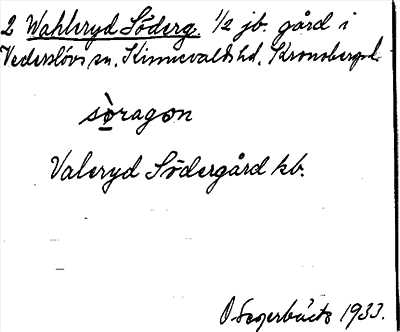 2 Wahleryd Söderg. 1/2 jb. gård i
Vederslövs sn, Kinnevalds hd, Kronobergs l.
sòragon
Valeryd Södergård kb.
O Segerbäck 1933.